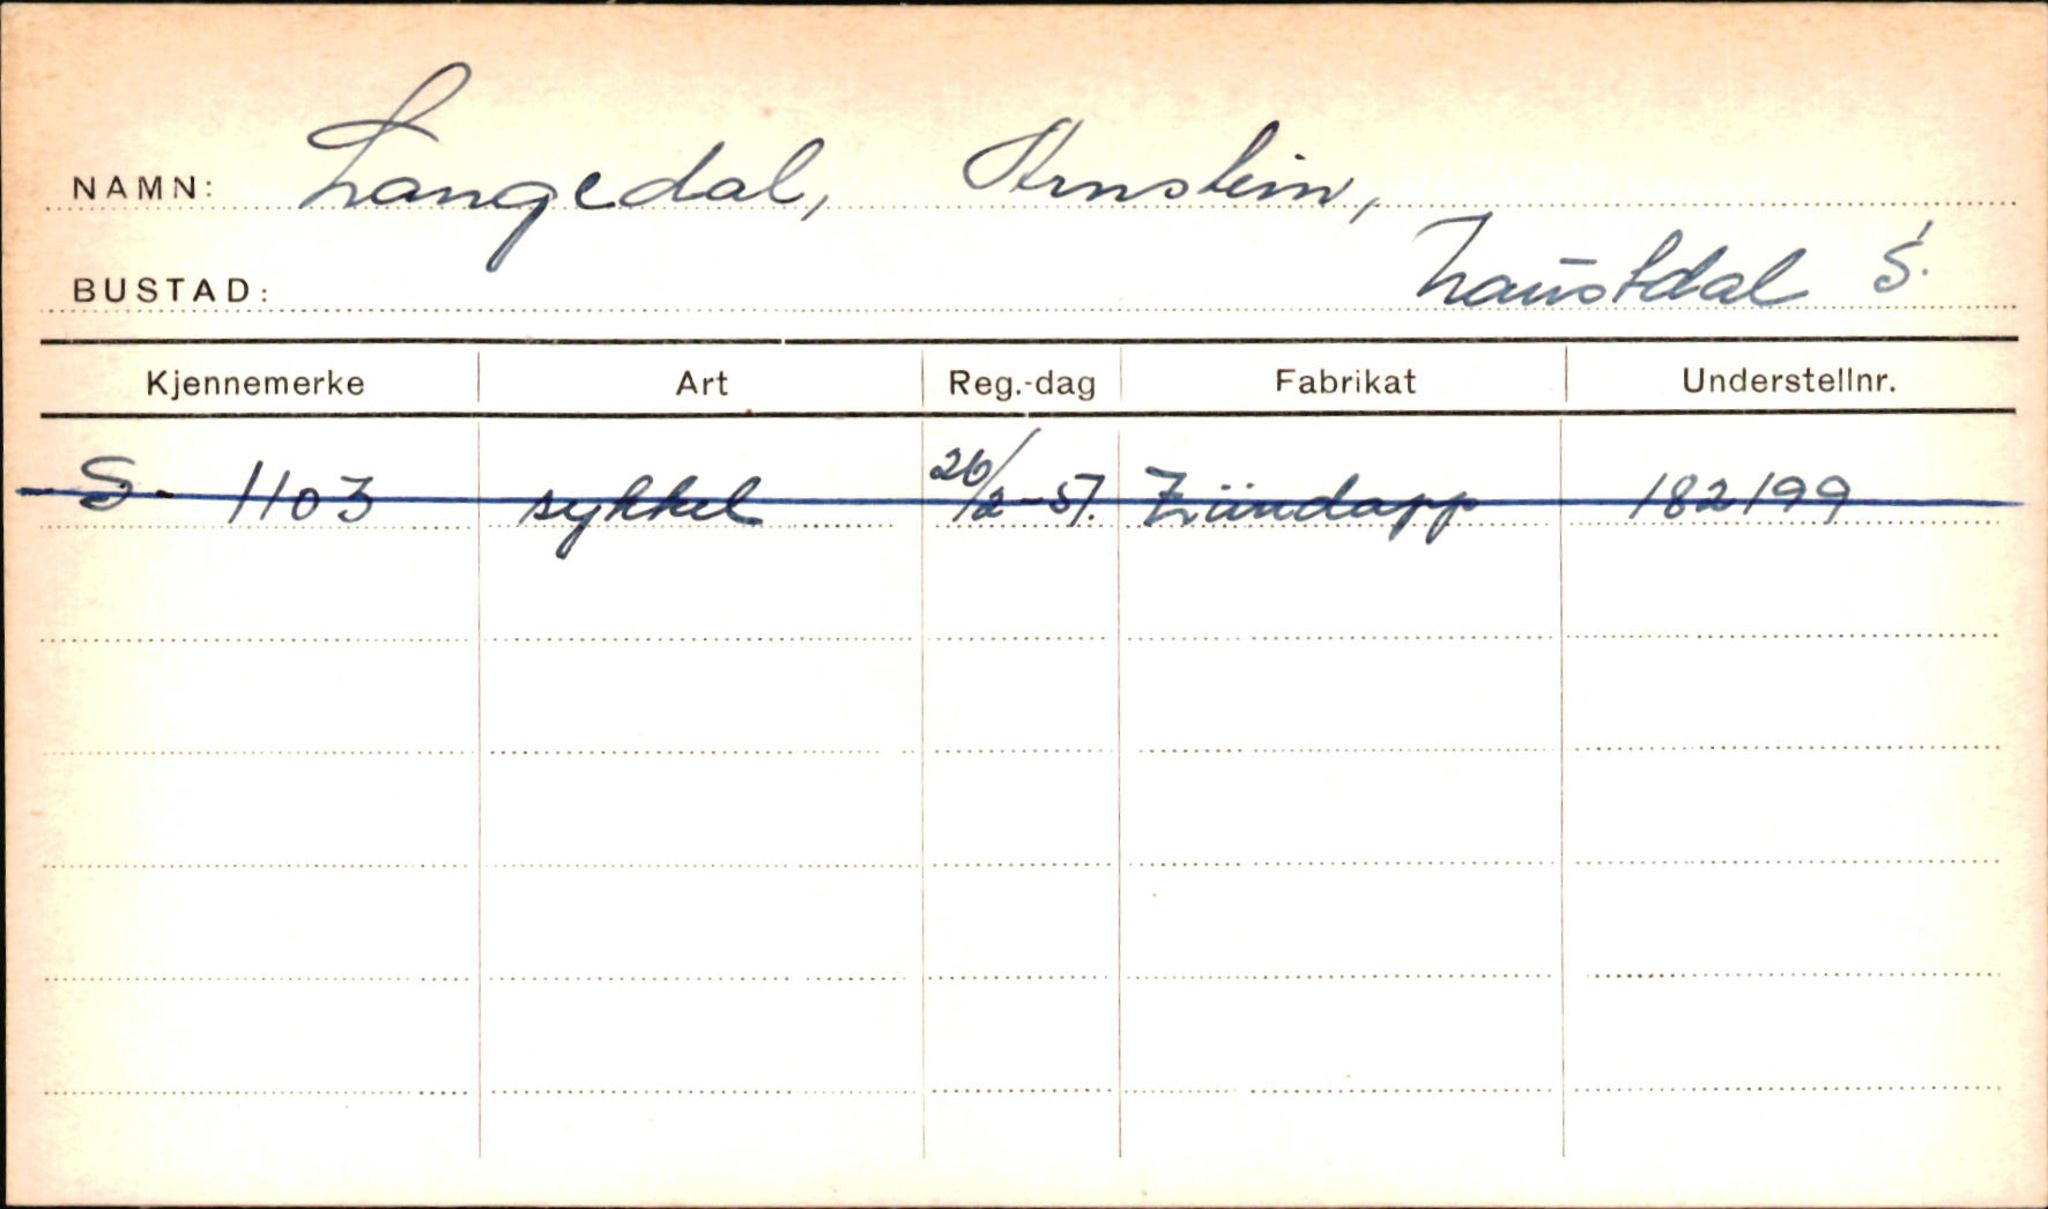 NAMN: Langedal, Arnstein,
BUSTAD: Naustdal S.
Kjennemerke Art Reg.-dag Fabrikat Understellnr.
S- 1103 sykkel 26/2-57. Zündapp 182199